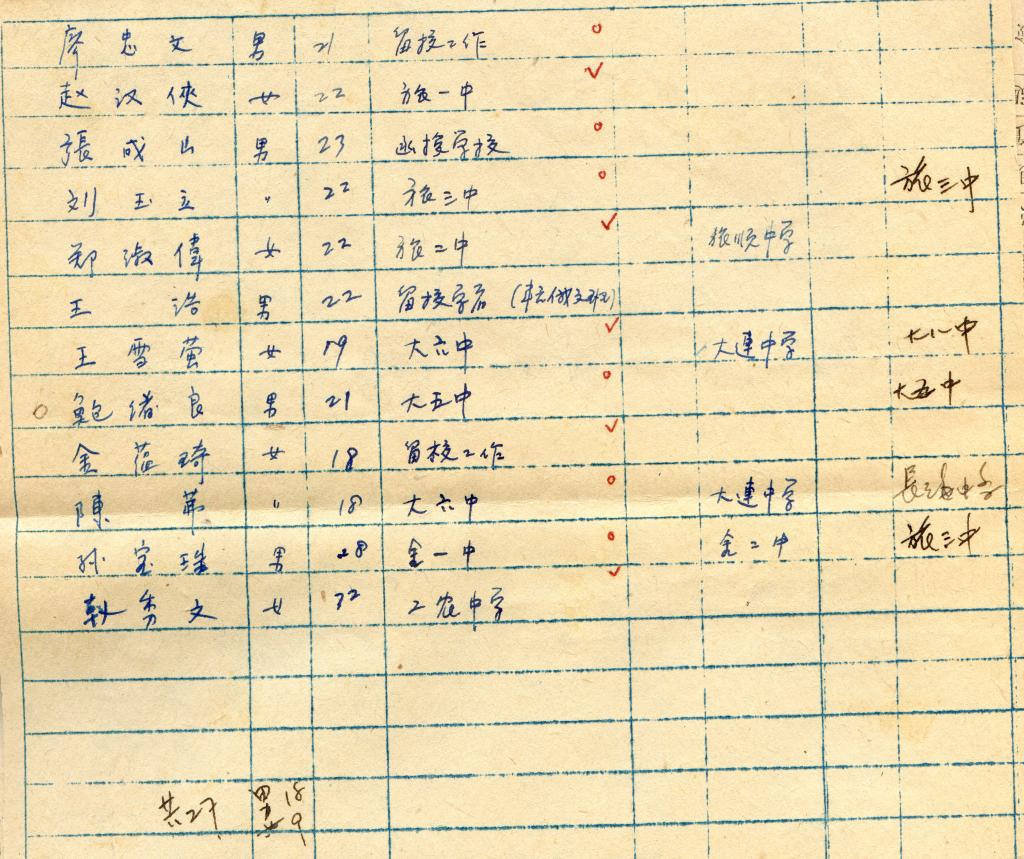 廖忠文 男 21 留校工作
赵汉俠 女 22 旅一中
張成山 男 23 函授学校
刘玉立 〃 22 旅三中 旅三中
郑淑偉 女 22 旅二中 旅顺中学
王浩 男 22 留校学習 (俄文班)
王雪萤 女 19 大六中 大連中学 大八中
鲍绪良 男 21 大五中 大五中
金蕴琦 女 18 留校工作
陳苐 〃 18 大六中 大連中学 長海中学
孙宝瑶 男 28 金一中 金二中 旅三中
韩秀文 女 32 工农中学
共27 男18
女9